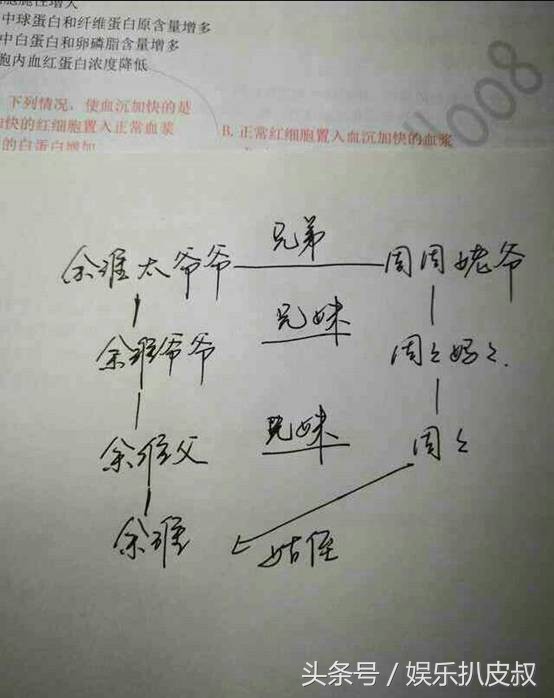 中球蛋白和纤维蛋白原含量增多
中白蛋白和卵磷脂含量增多
胞内血红蛋白浓度降低
下列情况,使血沉加快的是
快的红细胞置入正常血浆
B. 正常红细胞置入血沉加快的血浆
的白蛋白增加
800
余淮太爷爷 兄弟 周周姥爷
兄妹
余淮爷爷 周々妈々.
余淮父 兄妹 周々
余淮 姑侄
头条号 / 娱乐扒皮叔